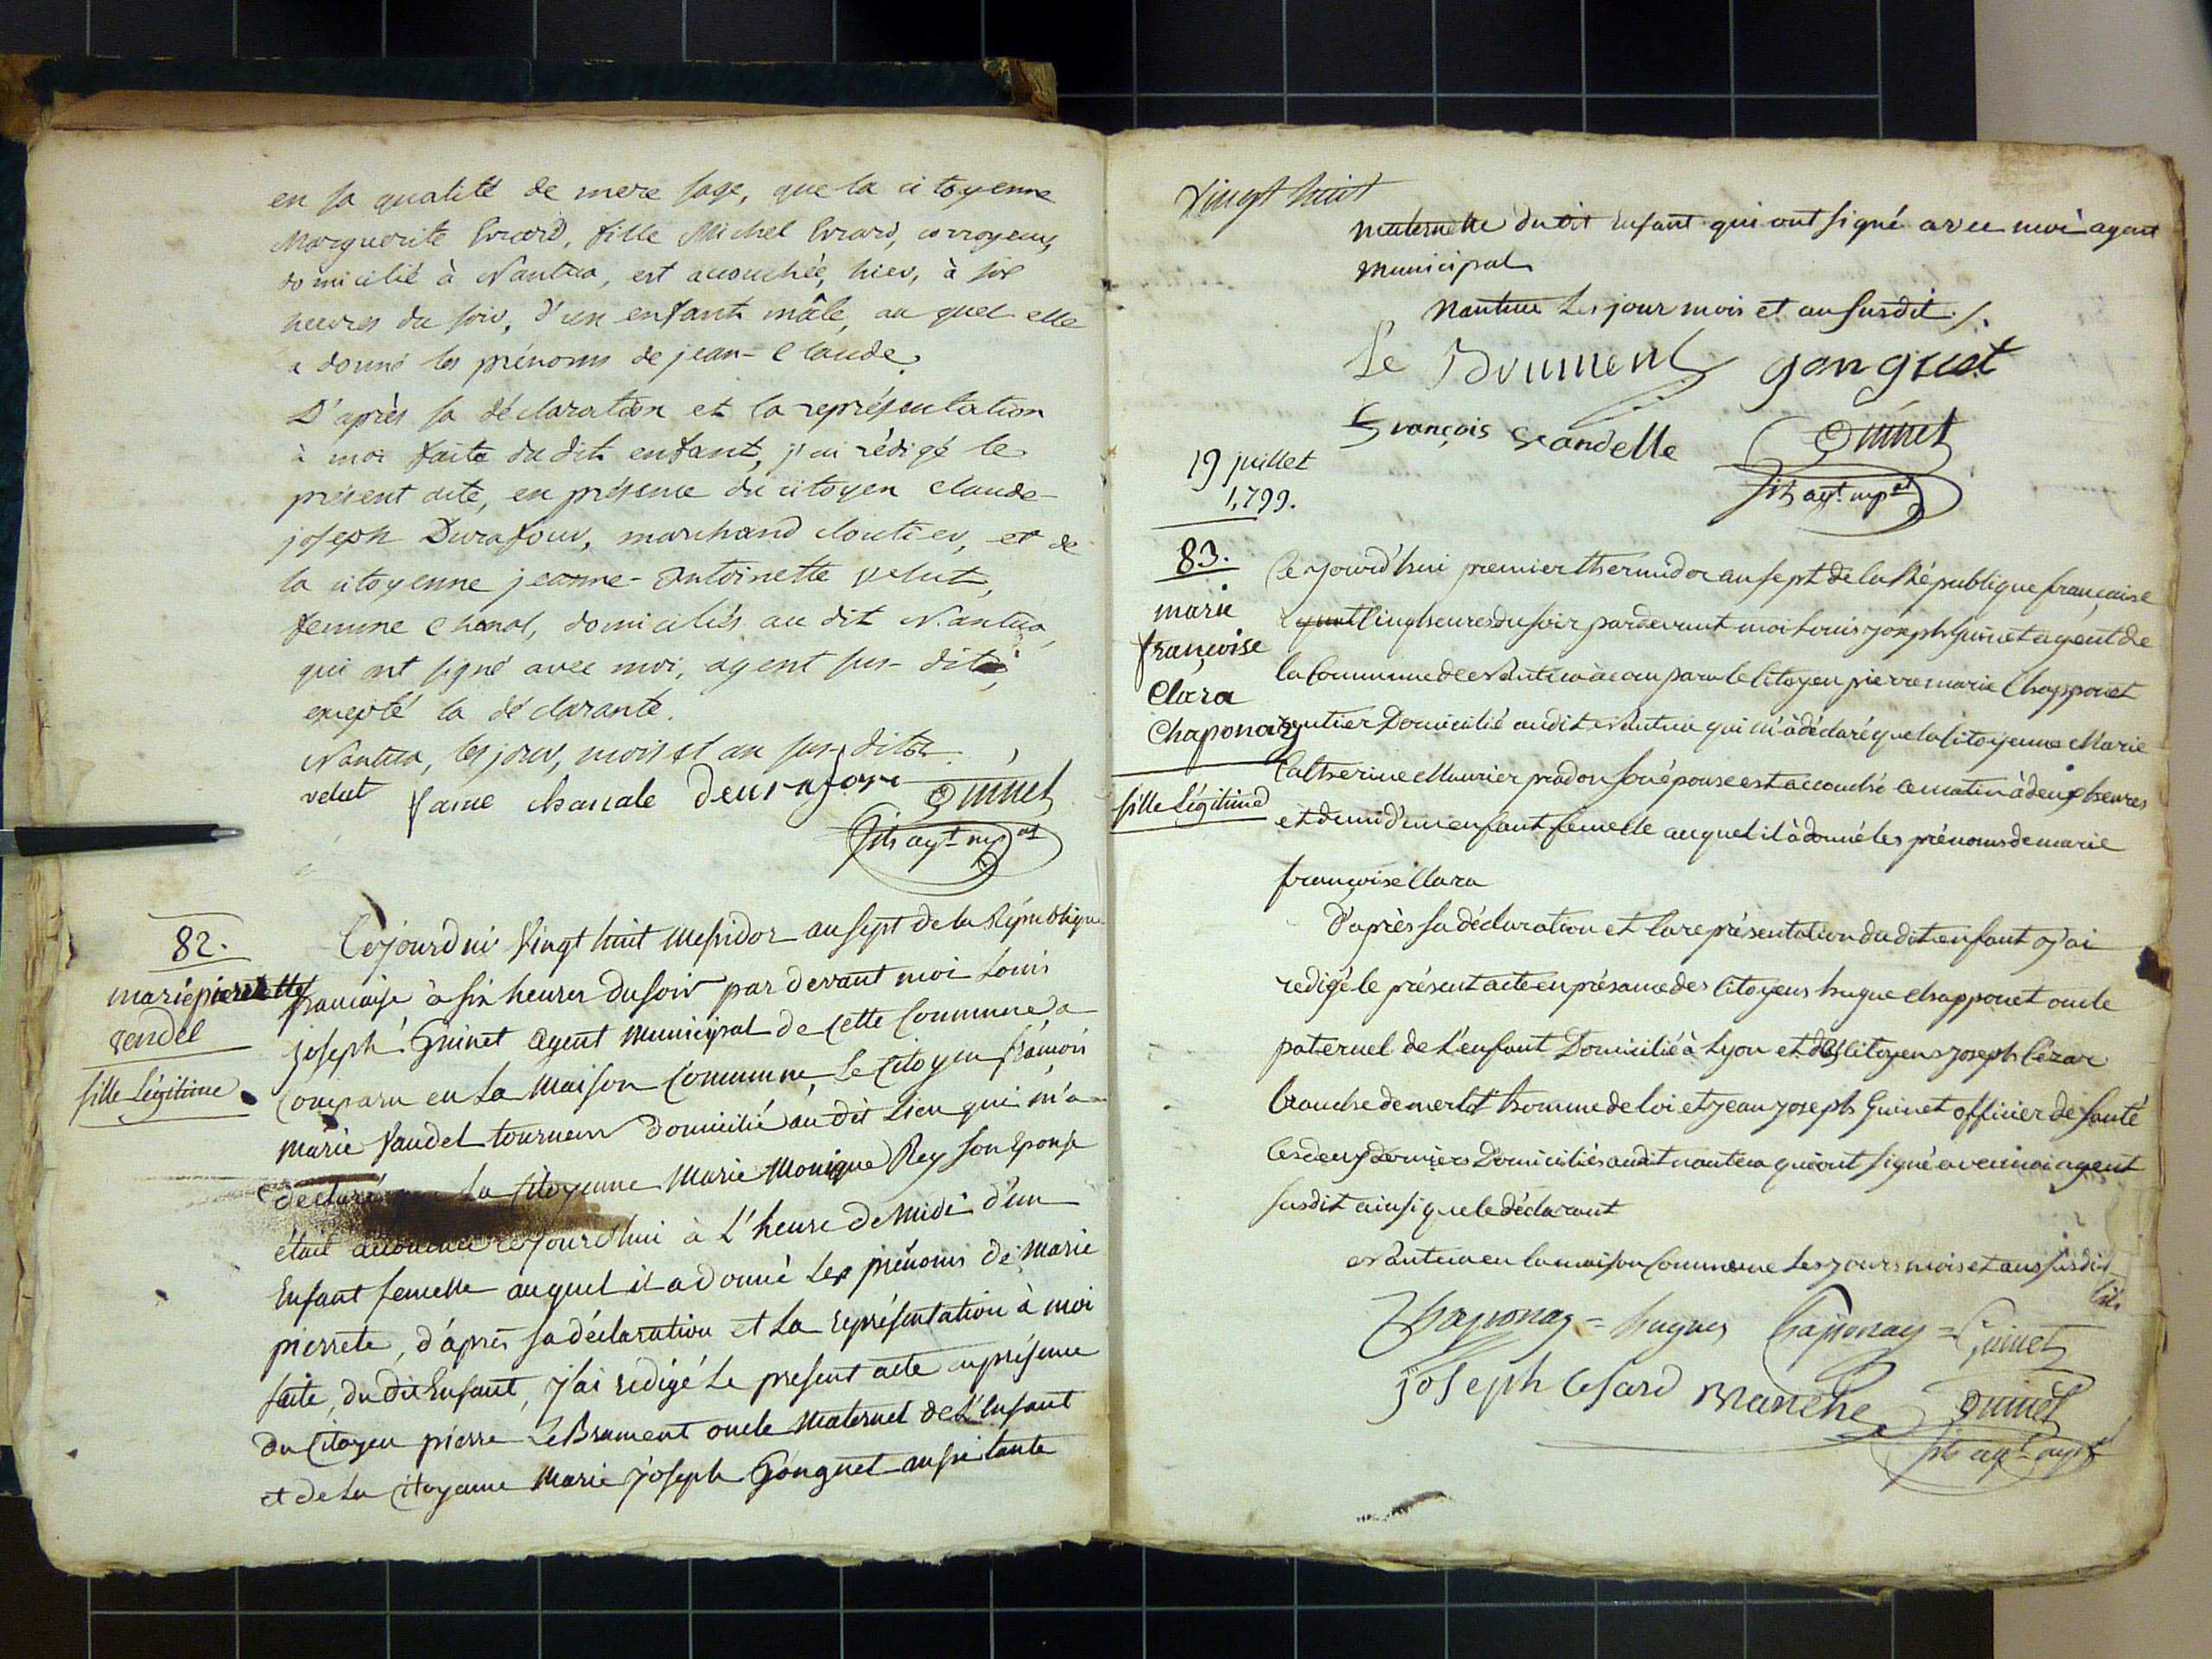 en sa qualité de mere sage, que la citoyenne
Marguerite Evrard, fille Michel Evrard, corroyeur,
domicilié à Nantua, est accouchée, hier, à six
heures du soir, d'un enfant mâle, au quel elle
a donné les prénoms de jean-Claude.
D'après sa déclaration et la représentation
à moi faite du dit enfant, j'ai rédigé le
présent acte, en présence du citoyen claude-
joseph Durafour, marchand cloutier, et de
la citoyenne jeanne-antoinette velut,
femme Chanal, domiciliés au dit Nantua,
qui ont signé avec moi, agent sus-dit,
excepté la déclarante.
Nantua, les jour, mois et an sus-dits.
velut fame chanale Deurafour Guinet
fils agt. mpal
82.
marie pierrette
vendel
fille Légitime
Cejourdui vingt huit Messidor an sept de la République
française, à six heures du soir par devant moi Louis
joseph Guinet agent Municipal de cette Commune a
Comparu en la Maison Commune, le Citoyen françois
Marie Vandel tourneur domicilié au dit Lieu qui m'a
déclaré que La Citoyenne Marie Monique Rey son Epouse
était accouchée cejourd'hui à L'heure de Midi d'un
Enfant femelle auquel il a donné Les prénoms de Marie
pierrete, d'après sa déclaration et La représentation à moi
faite, du dit Enfant, j'ai redigé Le present acte en présence
du Citoyen pierre LeBrument oncle Maternel de L'Enfant
et de La Citoyenne Marie Joseph Gonguet aussi tante
Vingt huit
maternelle du dit Enfant qui ont signé avec moi agent
Municipal
Nantua Les jour mois et an susdit ./.
Le Brument gonguet
François Vandelle Guinet
fils agt. mpal
19 juillet
1,799.
83.
marie
françoise
Clara
Chaponay
fille Légitime
Cejourd'hui premier thermidor an sept de la République française
cinq heures du soir pardevant moi Louis joseph Guinet agent de
la Commune de Nantua à comparu le Citoyen pierre marie Chapponet
rentier Domicilié audit Nantua qui m'à déclaré que la Citoyenne Marie
Catherine Maurier pradon son épouse est accouché ce matin à deux heures
et demi d'un enfant femelle auquel il à donné les prénoms de marie
françoise Clara
D'après sa déclaration et la représentation du dit enfant j'ai
redigé le présent acte en présance des Citoyens hugue Chapponet oncle
paternel de L'enfant Domicilié à Lyon et des Citoyens joseph Cézar
branche demerlot homme de loi et jean joseph Guinet officier de santé
les deux derniers Domiciliés audit nantua qui ont signé avec moi agent
susdit ainsi que le déclarant
Nantua en la maison Commune Les jours mois et ans susdit
Chaponay = hugues Chaponay = Guinet
joseph Cesard Branche Guinet
fils agt. mpal